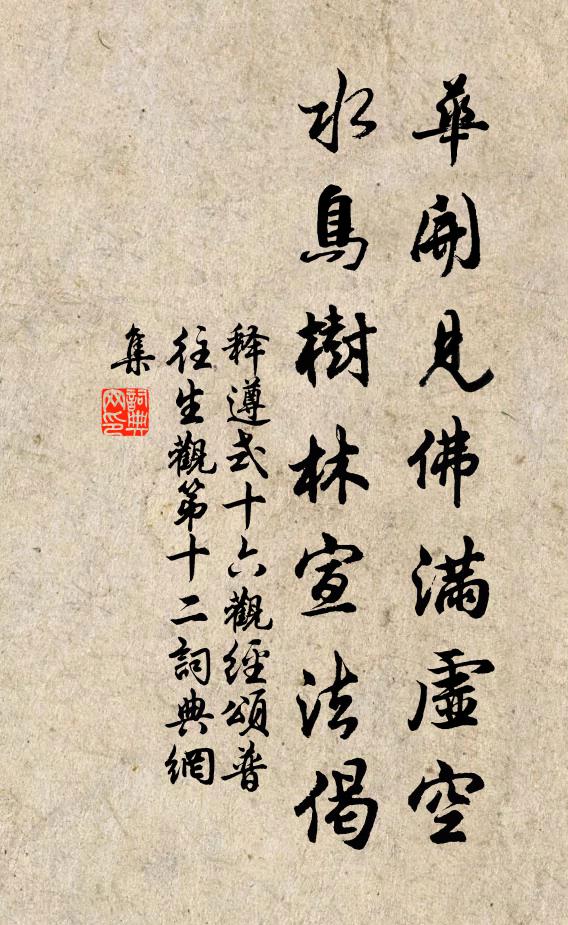 華開見佛滿虛空
水鳥樹林宣法偈
释遵式十六觀經頌普
往生觀第十二詞典網
集
詞典
网印